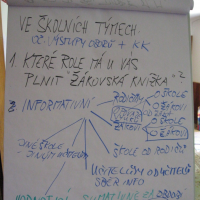 VE ŠKOLNÍCH TÝMECH
OČ. VÝSTUPY OBORŮ + KK
1. KTERÉ ROLE MÁ U VÁS
PLNIT "ŽÁKOVSKÁ KNÍŽKA"?
2. INFORMATIVNÍ
RODIČŮM
O ŠKOLE
O ŽÁKOVI
O ŠKOLE
O ŽÁKOVI
ŠKOLE OD RODIČŮ
UČITELŮM OD UČITELŮ
SBĚR INFO